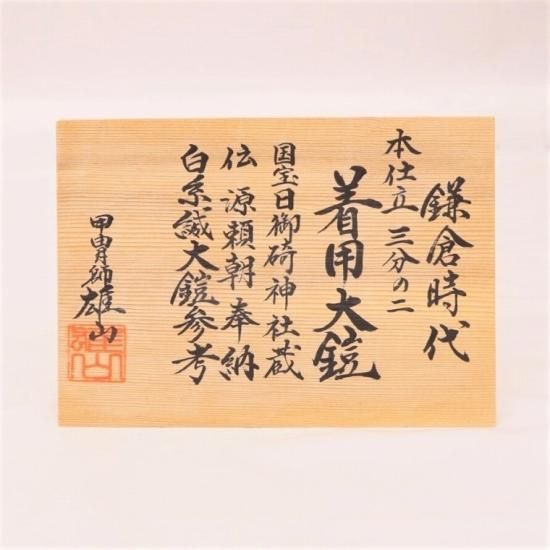 鎌倉時代
本仕立 三分の二
着用大鎧
国宝日御碕神社蔵
伝 源頼朝奉納
白糸縅大鎧参考
甲冑師雄山
雄山